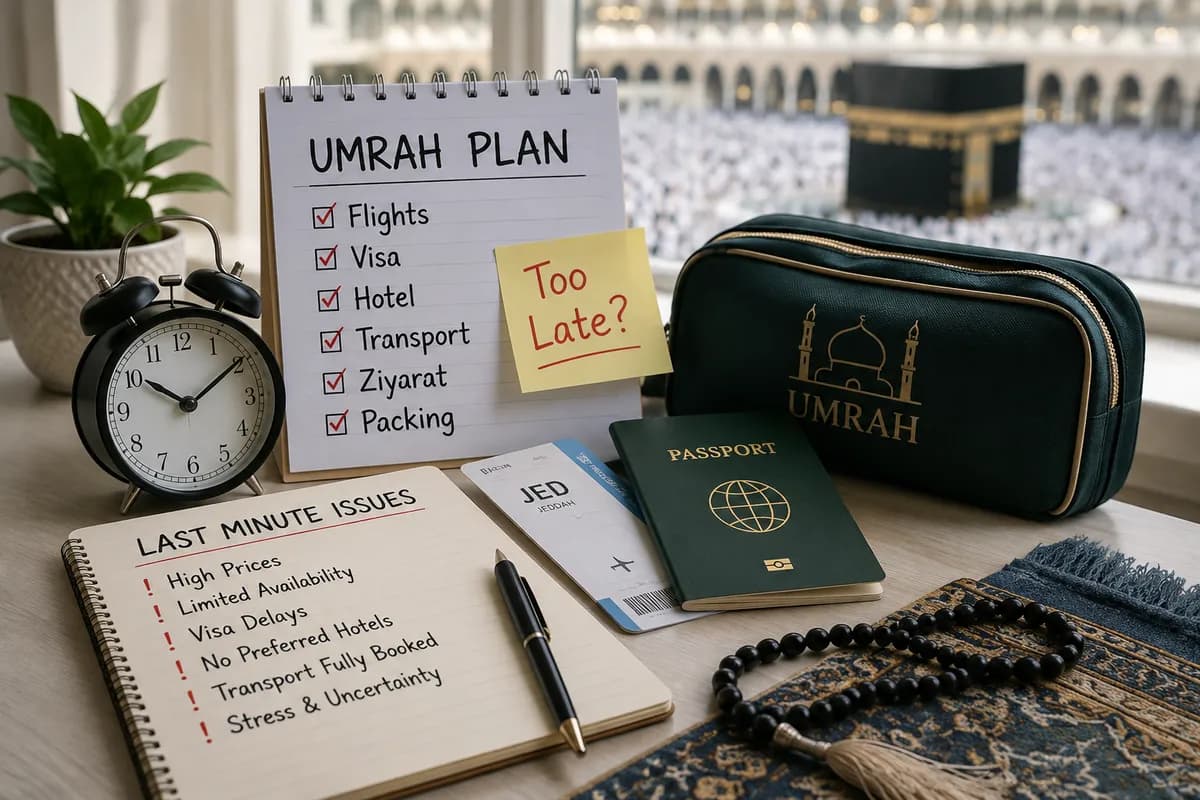 UMRAH PLAN
Flights
Visa
Hotel
Transport
Ziyarat
Packing
Too
Late?
12
1
2
3
4
5
6
7
8
9
10
11
LAST MINUTE ISSUES
! High Prices
! Limited Availability
! Visa Delays
! No Preferred Hotels
! Transport Fully Booked
! Stress & Uncertainty
JED
JEDDAH
PASSPORT
UMRAH